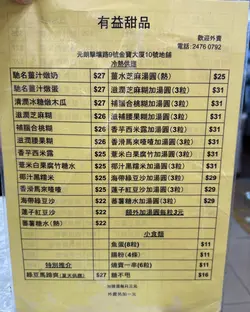 有益甜品
歡迎外賣
電話:2476 0792
元朗擊壤路9號金寶大厦10號地舖
冷熱供應
馳名薑汁燉奶 $27
馳名薑汁燉蛋 $27
清潤冰糖燉木瓜 $27
滋潤芝麻糊 $27
補腦合桃糊 $27
滋潤腰果糊 $27
香芋西米露 $25
薏米白果腐竹糖水 $25
椰汁黑糯米 $25
香滑馬來喳喳 $25
海帶綠豆沙 (熱) $22
蓮子紅豆沙 (熱) $22
蕃薯糖水(熱) $22
特別推介
綠豆馬蹄爽 $27
薑水芝麻湯圓(熱) $25
滋潤芝麻糊加湯圓(3粒) $31
補腦合桃糊加湯圓(3粒) $31
滋潤腰果糊加湯圓(3粒) $31
香芋西米露加湯圓(3粒) $29
薏米白果腐竹加湯圓(3粒) $29
椰汁黑糯米加湯圓(3粒) $29
香滑馬來喳喳加湯圓(3粒) $29
海帶綠豆沙加湯圓(3粒) $29
蓮子紅豆沙加湯圓(3粒) $29
蕃薯糖水加湯圓(3粒) $29
額外加湯圓每粒2元
小食類
魚蛋(8粒) $11
腸粉(4條) $11
燒賣一串(6粒) $11
$16
外賣另加一元